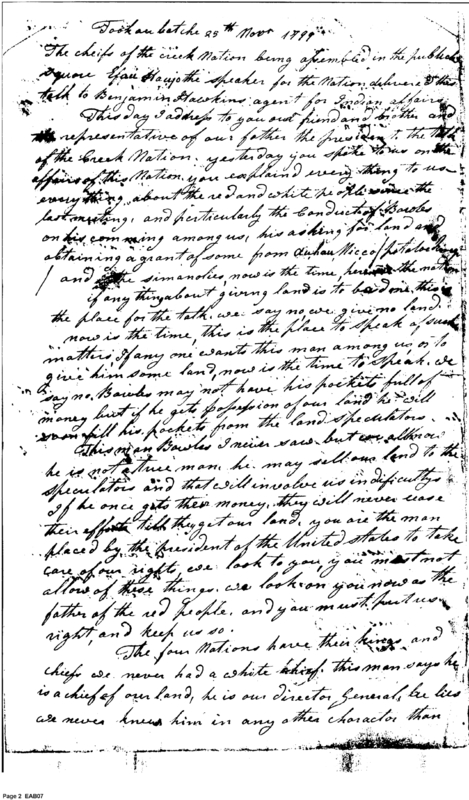 Tookaubatche 25th Novr 1799
The cheifs of the creek Nation being assembled in the publick
square Efau Haujo the speaker for the Nation delivered this
talk to Benjamin Hawkins agent for Indian affairs
This day I address to you our friend and brother and
the representative of our father the president the talk
of the Creek Nation. yesterday you spoke to us on the
affairs of this Nation, you explained every thing to us
everything about the red and white people since the
last meeting, and particularly the Conduct of Bowles
on his comming among us, his asking for land and
obtaining a grant of some from
and the simanolies, now is the time, the nation
if any thing about giving land is to be done, this is
the place for the talk, we say no, we give no land.
now is the time, this is the place to speak of such
matters If any one wants this man among us, or to
give him some land, now is the time to speak. we
say no. Bowles may not have his pockets full of
money but if he gets possession of our land he will
fill his pockets from the land speculators
This man Bowles I never saw but we all know
he is not a true man, he may sell our land to the
speculators and that will involve us in dificultys
If he once gets their money, they will never cease
their efforts till they get our land, you are the man
placed by the President of the United states to take
care of our rights, we look to you, you must not
allow of these things. we look on you now as the
father of the red people, and you must put us
right, and keep us so.
The four Nations have their kings and
chiefs we never had a white chief. this man says he
is a chief of our land, he is our director General, he lies
we never knew him in any other charactor than
Page 2 EAB07